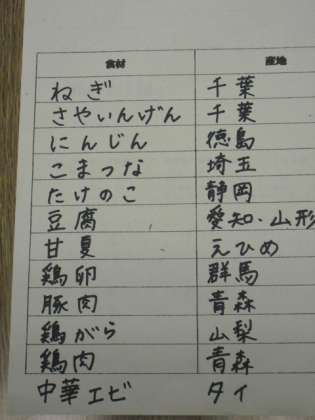 食材 産地
ねぎ 千葉
さやいんげん 千葉
にんじん 徳島
こまつな 埼玉
たけのこ 静岡
豆腐 愛知・山形
甘夏 えひめ
鶏卵 群馬
豚肉 青森
鶏がら 山梨
鶏肉 青森
中華エビ タイ